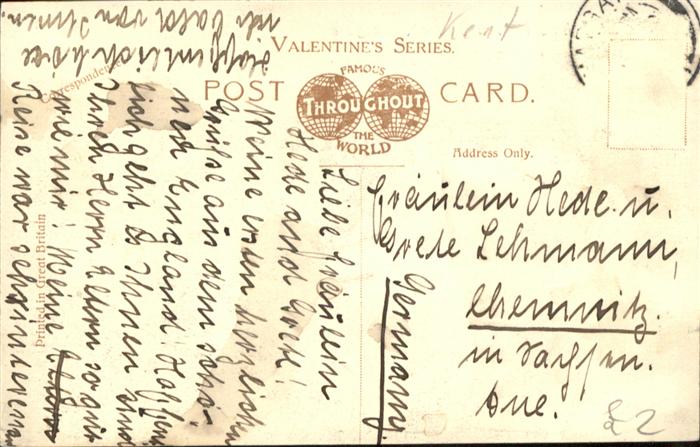 Kent
VALENTINE'S SERIES.
FAMOUS
POST CARD.
THROUGHOUT
THE
WORLD
Correspondence
Address Only.
Printed in Great Britain
Liebe Fräulein
Hede und Grete!
Meine ersten herzlichen
Grüße aus dem schö-
nen England! Hoffen
lich geht es Ihnen und
Ihren Herrn Eltern so gut
wie mir! Meine
Reise war
Hoffentlich höre
ich bald von Ihnen.
Fräulein Hede u.
Grete Lehmann,
Chemnitz.
in Sachsen.
Aue.
Germany.
£2